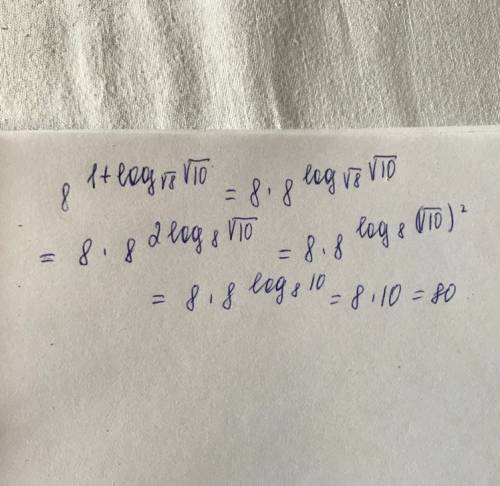 8^{1+log_{√8}√10} = 8·8^{log_{√8}√10}
= 8·8^{2log_8√10} = 8·8^{log_8(√10)^2}
= 8·8^{log_8 10} = 8·10 = 80